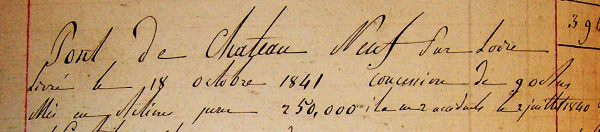 Pont de Chateau Neuf Sur Loire
Livré le 18 octobre 1841 Concession de 90 ans
Mis en Actions pour 250,000 le 2 juillet 1840
396